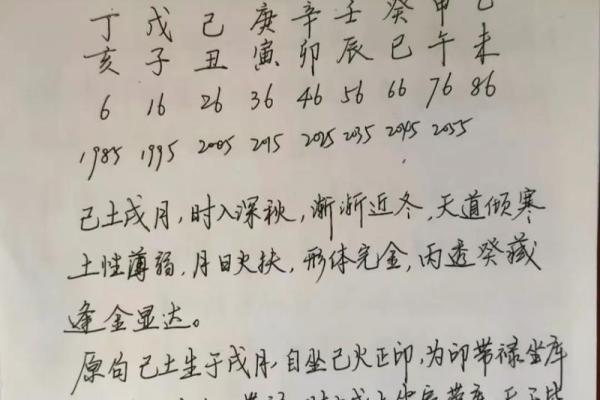 丁 戊 己 庚 辛 壬 癸 甲 乙
亥 子 丑 寅 卯 辰 巳 午 未
6 16 26 36 46 56 66 76 86
1985 1995 2005 2015 2025 2035 2045 2055
己土戌月，时入深秋，渐渐近冬，天道倾寒
土性薄弱，月日火扶，形体完全，丙透癸藏
逢金显达。
原句己土生于戌月，自坐巳火正印，为印带禄坐库